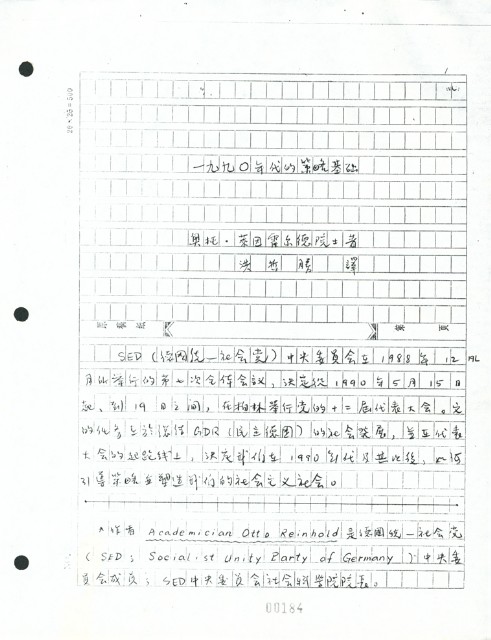 1
20×25=500
一九九〇年代的策略基础
奥托·莱因霍尔德院士著
洪哲勝 譯
第 頁
SED (德國统一社会党) 中央委員会在1988年12
月所举行的第七次全体会议,决定從1990年5月15日
起、到19日之间,在柏林举行党的十二屆代表大会。它
的任务在於总结GDR (民主德國) 的社会发展,並在代表
大会的起跑线上,决定我们在1990年代及其以後,如何
引導策略去塑造我们的社会主义社会。
*作者 Academician Otto Reinhold 是德國统一社会党
(SED; Socialist Unity Party of Germany) 中央委
員会成員;SED中央委員会社会科學院院長。
00184